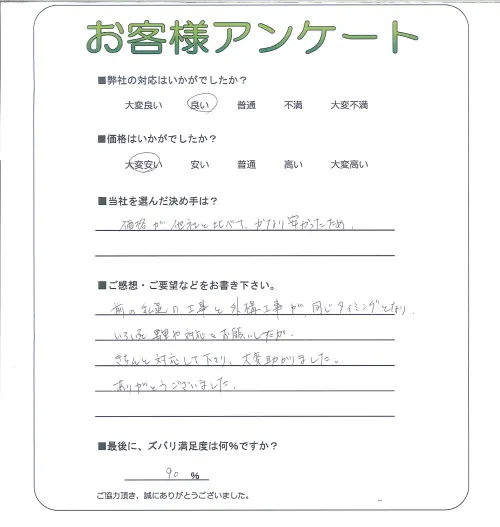 お客様アンケート
■弊社の対応はいかがでしたか？
大変良い 良い 普通 不満 大変不満
■価格はいかがでしたか？
大変安い 安い 普通 高い 大変高い
■当社を選んだ決め手は？
価格が他社と比べて、かなり安かったため.
■ご感想・ご要望などをお書き下さい。
前の私道の工事と外構工事が、同じタイミングとなり.
いろいろ 対応をお願いしたが.
きちんと対応して下さり、大変助かりました。
ありがとうございました.
■最後に、ズバリ満足度は何％ですか？
90 %
ご協力頂き、誠にありがとうございました。